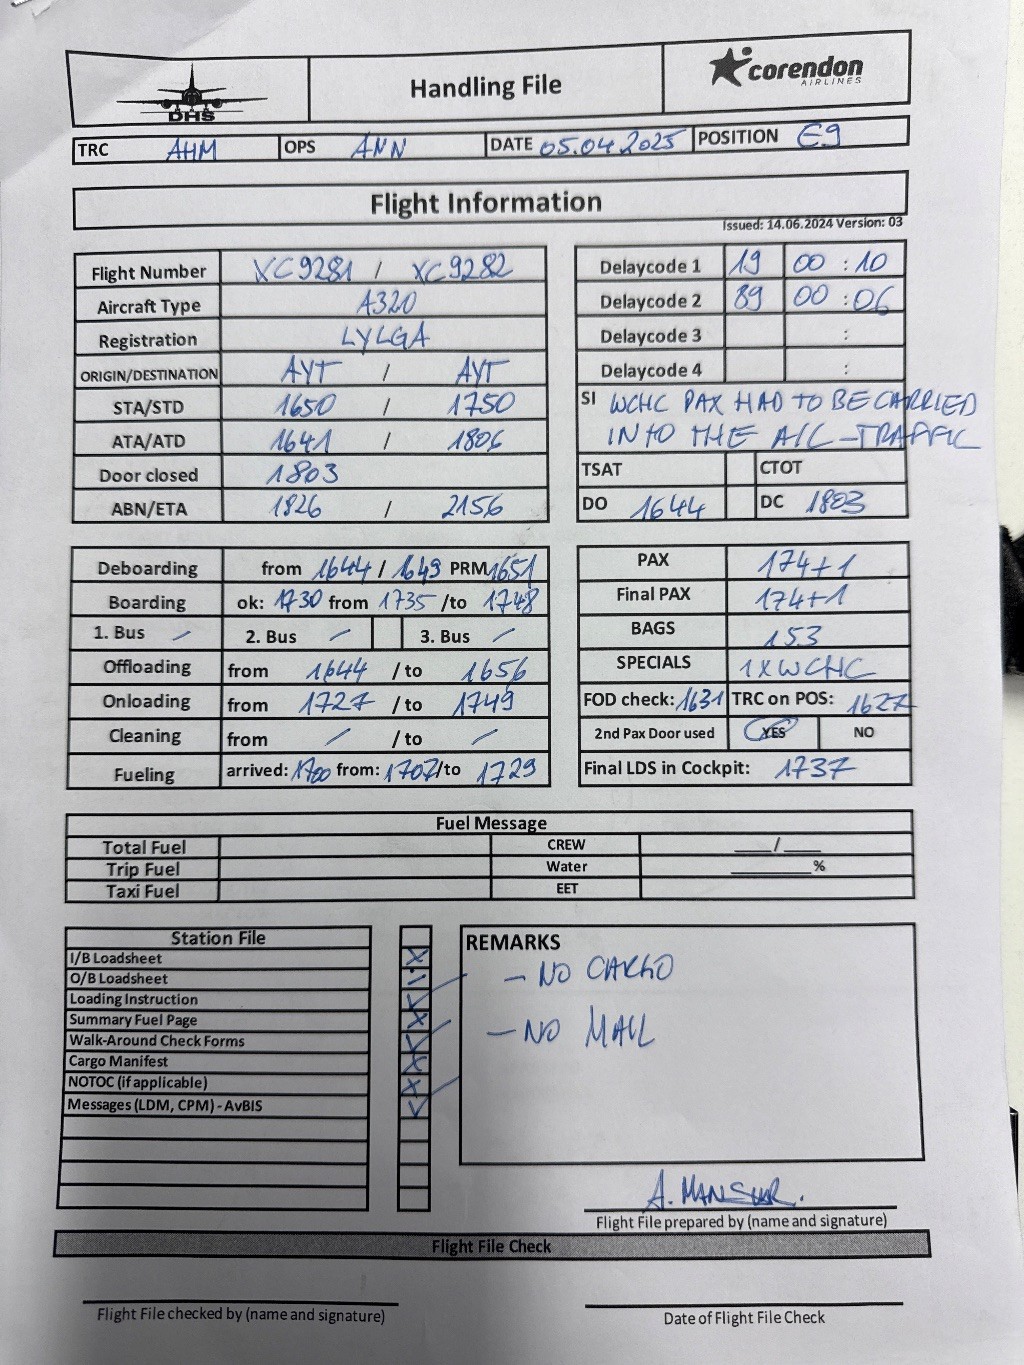 DHS
Handling File
corendon
AIRLINES
TRC AHM OPS ANN DATE 05.04.2025 POSITION E9
Flight Information
Issued: 14.06.2024 Version: 03
Flight Number XC9281 / XC9282
Aircraft Type A320
Registration LYLGA
ORIGIN/DESTINATION AYT / AYT
STA/STD 1650 / 1750
ATA/ATD 1641 / 1806
Door closed 1803
ABN/ETA 1826 / 2156
Delaycode 1 19 00 : 10
Delaycode 2 89 00 : 06
Delaycode 3 :
Delaycode 4 :
SI WCHC PAX HAD TO BE CARRIED
INTO THE A/C - TRAFFIC
TSAT CTOT
DO 1644 DC 1803
Deboarding from 1644 / 1649 PRM 1651
Boarding ok: 1730 from 1735 /to 1748
1. Bus / 2. Bus / 3. Bus /
Offloading from 1644 / to 1656
Onloading from 1727 / to 1749
Cleaning from / / to /
Fueling arrived: 1700 from: 1707/to 1729
PAX 174+1
Final PAX 174+1
BAGS 153
SPECIALS 1XWCHC
FOD check: 1631 TRC on POS: 1627
2nd Pax Door used YES NO
Final LDS in Cockpit: 1737
Fuel Message
Total Fuel CREW ____/____
Trip Fuel Water ________%
Taxi Fuel EET
Station File
I/B Loadsheet X
O/B Loadsheet
Loading Instruction
Summary Fuel Page X
Walk-Around Check Forms
Cargo Manifest X
NOTOC (if applicable) X
Messages (LDM, CPM) - AvBIS
REMARKS
- NO CARGO
- NO MAIL
A. MANSUR.
Flight File prepared by (name and signature)
Flight File Check
Flight File checked by (name and signature)
Date of Flight File Check